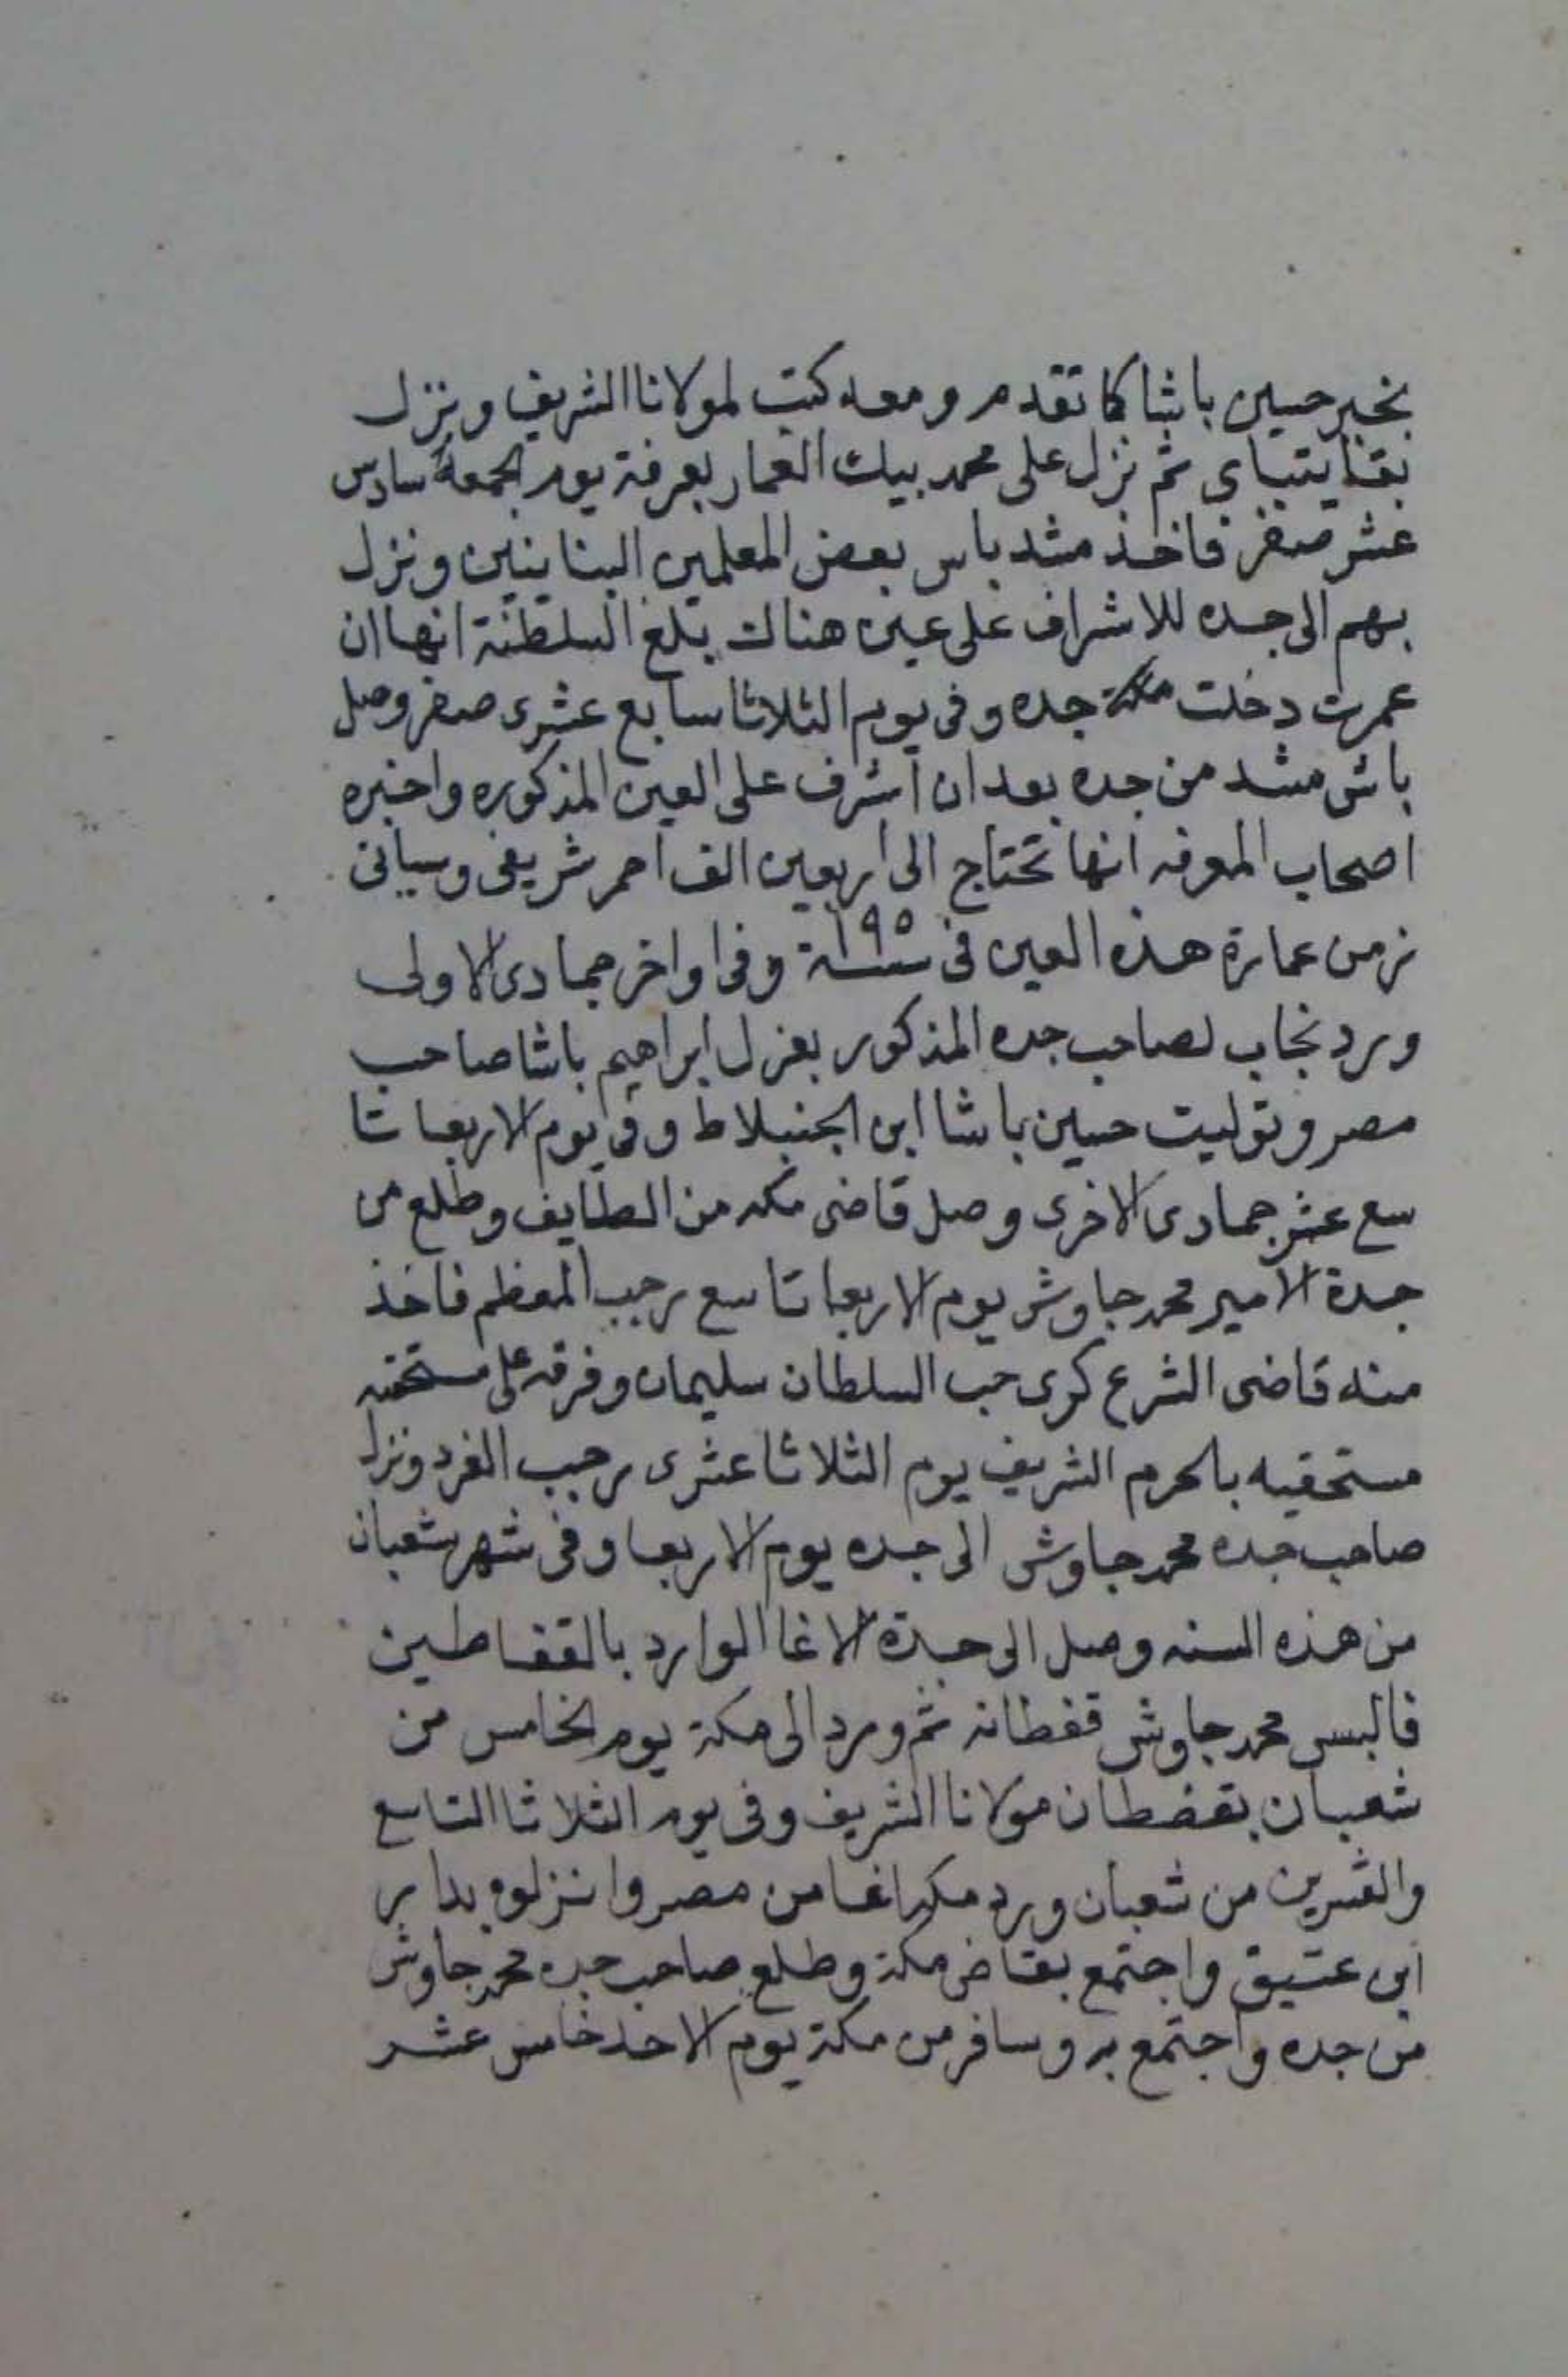 بخبر حسين باشا كما تقدم ومعه كتب لمولانا الشريف ونزل
بقايتباي ثم نزل على محمد بيك المعمار بعرفة يوم الجمعة سادس
عشر صفر فاخذ مشد باس بعض المعلمين البنايين ونزل
بهم الى جده للاشراف على عين هناك بلغ السلطنة انها ان
عمرت دخلت مكة جده وفى يوم الثلاثا سابع عشرى صفر وصل
باش مشد من جده بعد ان اشرف على العين المذكوره واخبره
اصحاب المعرفه انها تحتاج الى اربعين الف احمر شريفى وسياتى
زمن عمارة هذه العين فى سنة ١٩٥ وفى اواخر جمادى الاولى
ورد نجاب لصاحب جده المذكور بعزل ابراهيم باشا صاحب
مصر وتوليت حسين باشا ابن الجنبلاط وفى يوم الاربعا تا
سع عشر جمادى الاخرى وصل قاضى مكه من الطايف وطلع من
جدة الامير محمد جاوش يوم الاربعا تاسع رجب المعظم فاخذ
منه قاضى الشرع كرى حب السلطان سليمان وفرقه على مستحقيه
مستحقيه بالحرم الشريف يوم الثلاثا عشرى رجب الفرد ونزل
صاحب جده محمد جاوش الى جده يوم الاربعا وفى شهر شعبان
من هذه السنه وصل الى جدة الاغا الوارد بالقفاطين
فالبس محمد جاوش قفطانه ثم ورد الى مكة يوم الخامس من
شعبان بقفطان مولانا الشريف وفى يوم الثلاثا التاسع
والعشرين من شعبان ورد مكه اغا من مصر وانزلوه بدار
ابى عتيق واجتمع بقاضى مكة وطلع صاحب جده محمد جاوش
من جده واجتمع به وسافر من مكة يوم الاحد خامس عشر